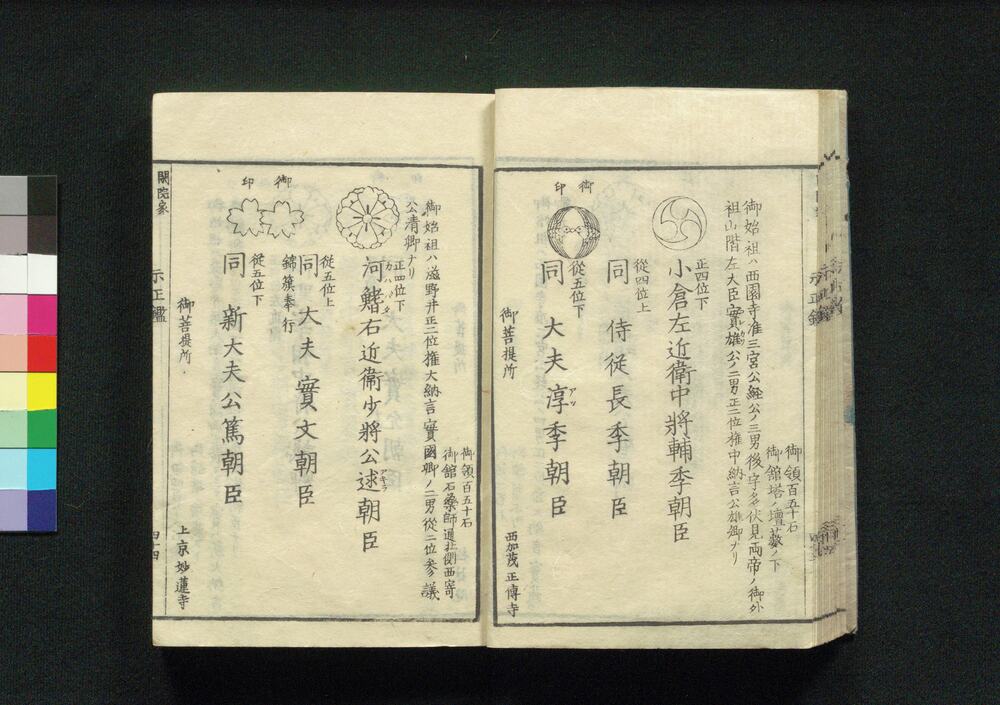 御領百五十石
御舘塔ノ壇藪ノ下
御始祖ハ西園寺准三宮公経公ノ三男後宇多伏見両帝ノ御外
祖山階左大臣實雄公ノ二男正二位権中納言公雄卿ナリ
正四位下
小倉左近衛中將輔季朝臣
從四位上
同 侍従長季朝臣
御印
從五位下
同 大夫淳季朝臣
アツ
御菩提所 西加茂正傳寺
御領百五十石
御舘石藥師通北側西寄
御始祖ハ滋野井正二位権大納言實國卿ノ二男從二位参議
公清卿ナリ
正四位下
カハバタ
河鰭右近衛少將公述朝臣
アキラ
從五位上
同 大夫實文朝臣
錦籏奉行
御印
從五位下
同 新大夫公篤朝臣
御菩提所 上京妙蓮寺
閑院家 四十四